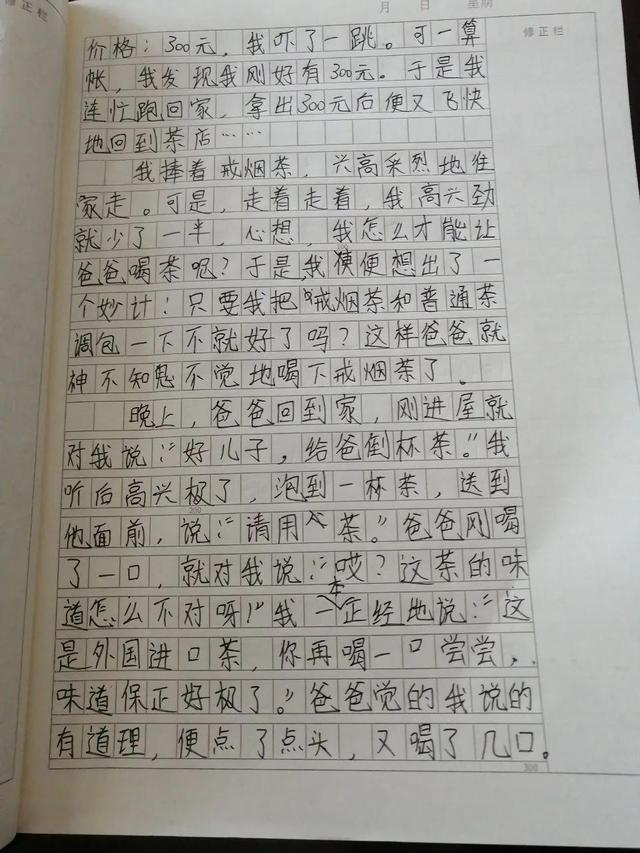 月 日 星期
修正栏
修正栏
价格：300元，我吓了一跳。可一算
帐，我发现我刚好有300元。于是我
连忙跑回家，拿出300元后便又飞快
地回到茶店……
我捧着戒烟茶，兴高采烈地往
家走。可是，走着走着，我高兴劲
就少了一半，心想，我怎么才能让
爸爸喝茶呢？于是，我便想出了一
个妙计！只要我把戒烟茶和普通茶
调包一下不就好了吗？这样爸爸就
神不知鬼不觉地喝下戒烟茶了。
晚上，爸爸回到家，刚进屋就
对我说：“好儿子，给爸倒杯茶。”我
听后高兴极了，泡到一杯茶，送到
200
他面前，说：“请用茶。”爸爸刚喝
了一口，就对我说：“哎？这茶的味
道怎么不对呀！”我一本正经地说：“这
是外国进口茶，你再喝一口尝尝，
味道保正好极了。”爸爸觉的我说的
有道理，便点了点头，又喝了几口。
300